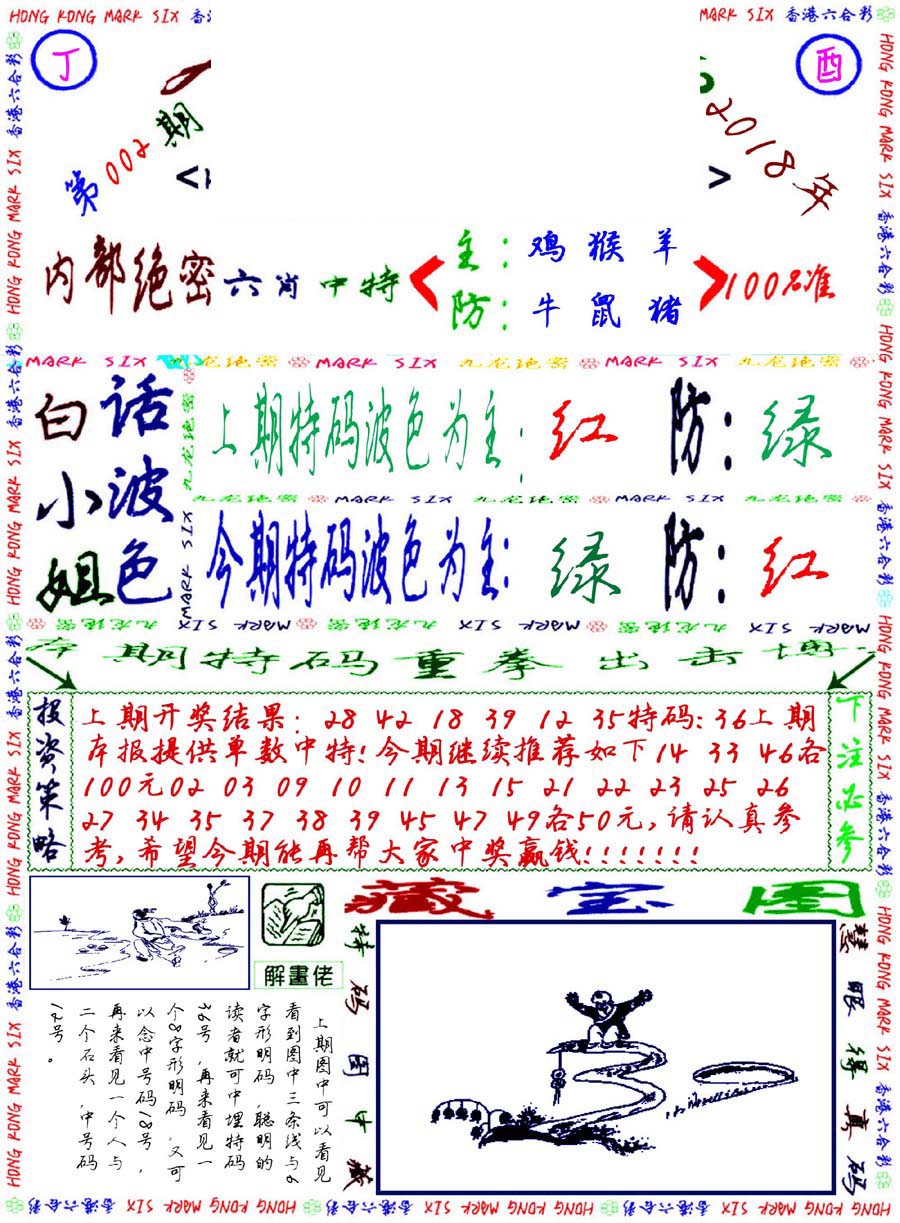 HONG KONG MARK SIX 香
MARK SIX 香港六合彩
丁
酉
第002期
2018年
< >
内部绝密六肖中特
主：鸡 猴 羊
防：牛 鼠 猪
100%准
MARK SIX 九龙绝密 MARK SIX 九龙绝密 MARK SIX 九龙绝密
白话
小波
姐色
上期特码波色为主：红 防：绿
九龙绝密 MARK SIX 九龙绝密 MARK SIX 九龙绝密
今期特码波色为主：绿 防：红
MARK SIX 九龙绝密 MARK SIX 九龙绝密 MARK SIX 九龙绝密
本期特码重拳出击博
投资策略
上期开奖结果：28 42 18 39 12 35特码：36上期
本报提供单数中特！今期继续推荐如下14 33 46各
100元02 03 09 10 11 13 15 21 22 23 25 26
27 34 35 37 38 39 45 47 49各50元，请认真参
考，希望今期能再帮大家中奖赢钱！！！！！！！
下注必参
藏宝图
解畫佬
上期图中可以看见
看到图中三条线与6
字形明码，聪明的
读者就可中埋特码
36号，再来看见一
个8字形明码，又可
以念中号码18号，
再来看见一个人与
二个石头，中号码
12号。
特码图中藏
慧眼得真码
HONG KONG MARK SIX 香港六合彩